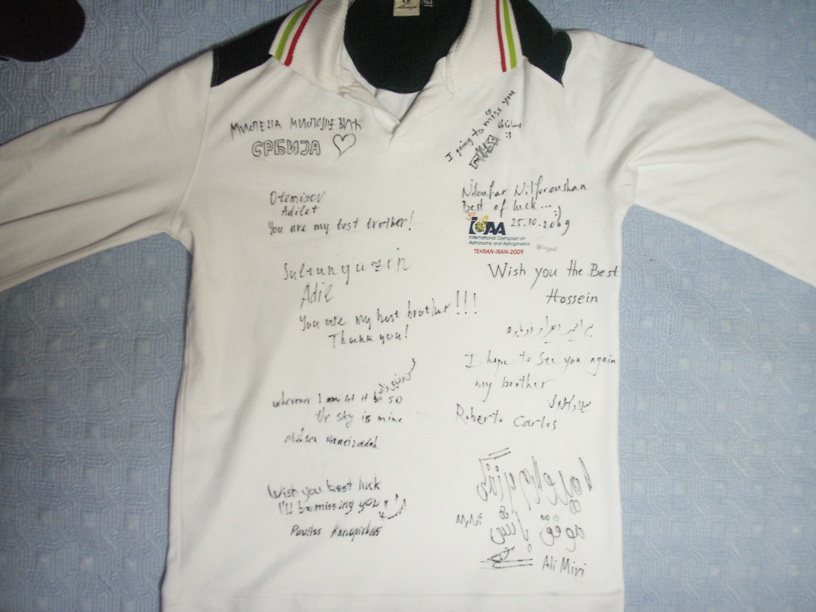 МИЛЕНА МИЛОЈЕВИЋ
СРБИЈА
I going to miss you
Otemisov
Adilet
You are my best brother!
Niloufar Nilforoushan
Best of luck... :)
25.10.2009
International Olympiad on
Astronomy and Astrophysics
TEHRAN-IRAN-2009
Adil
You are my best brother!!!
Thank you!
Wish you the Best
Hossein
به امید دیدار دوباره
I hope to see you again
my brother
Roberto Carlos
wherever I am let it be so
Ur sky is mine
Mohsen
Wish you best luck
I'll be missing you
Povilas
موفق باشی
Ali Miri